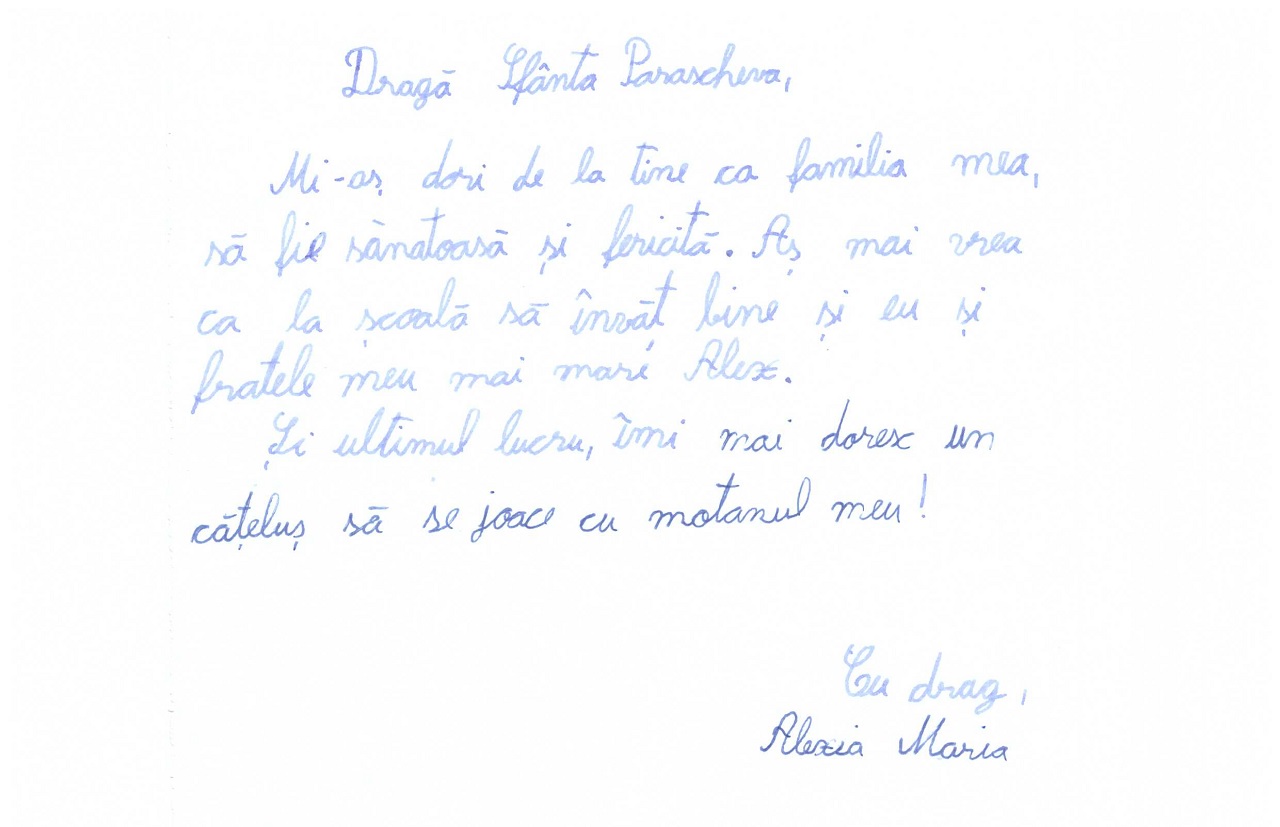 Dragă Sfânta Parascheva,
Mi-aș dori de la tine ca familia mea,
să fie sănatoasă și fericită. Aș mai vrea
ca la școală să învăț bine și eu și
fratele meu mai mare Alex.
Și ultimul lucru, îmi mai doresc un
cățeluș să se joace cu motanul meu!
Cu drag,
Alexia Maria